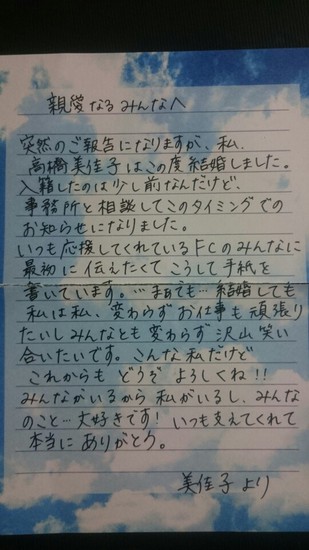 親愛なるみんなへ
突然のご報告になりますが、私、
高橋美佳子はこの度結婚しました。
入籍したのは少し前なんだけど、
事務所と相談してこのタイミングでの
お知らせになりました。
いつも応援してくれているFCのみんなに
最初に伝えたくてこうして手紙を
書いています。…まぁでも…結婚しても
私は私、変わらずお仕事も頑張り
たいしみんなとも変わらず沢山笑い
合いたいです。こんな私だけど
これからもどうぞよろしくね!!
みんながいるから私がいるし、みんな
のこと…大好きです!いつも支えてくれて
本当にありがとう。
美佳子より